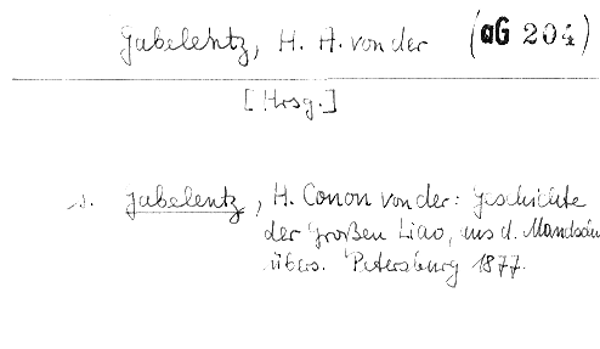 Gabelentz, H. A. von der (aG 204)
[Hrsg.]
s. Gabelentz, H. Conon von der: Geschichte
der Großen Liao, aus d. Mandschu
übers. Petersburg 1877.